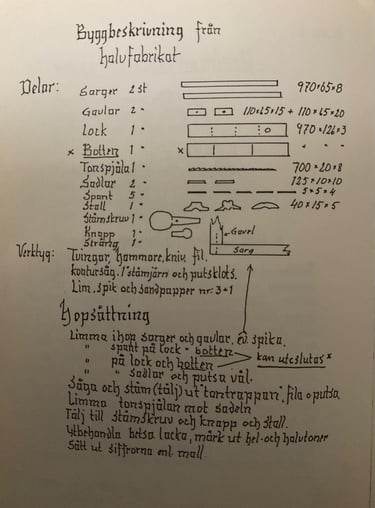 Byggbeskrivning från
halvfabrikat
Delar: Sarger 2 st 970×65×8
Gavlar 2 " 110×65×15 + 110×65×20
Lock 1 " 970×126×3
× Botten 1 " × " " "
Tonspjäla 1 " 700×20×8
Sadlar 2 " 125×10×10
Spant 5 " 5×5×4
Stall 1 " 40×15×5
Stämskruv 1 "
Knapp 1 " Gavel
Sträng 1 " Sarg
Verktyg: Tvingar, hammare, kniv, fil.
kontursåg, 1" stämjärn och putsklots.
Lim, spik och sandpapper nr: 3+1
Hopsättning
Limma ihop sarger och gavlar, ev. spika.
" spant på lock - botten
" på lock och botten kan uteslutas ×
" " sadlar och putsa väl.
Såga och stäm (tälj) ut "tontrappan", fila o putsa.
Limma tonspjälan mot sadeln
Tälj till stämskruv och knapp och stall.
Ytbehandla betsa lacka, märk ut hel- och halvtoner
Sätt ut siffrorna enl. mall.